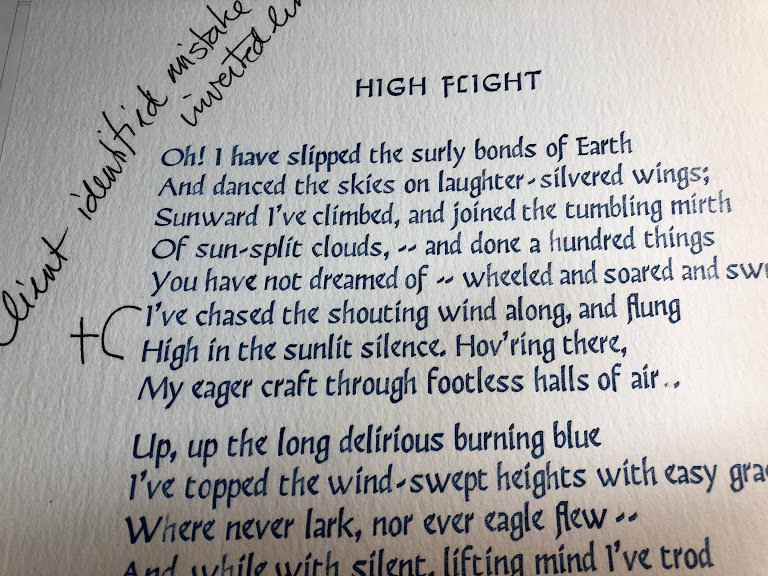 Client identified mistake
inverted
HIGH FLIGHT
Oh! I have slipped the surly bonds of Earth
And danced the skies on laughter-silvered wings;
Sunward I've climbed, and joined the tumbling mirth
Of sun-split clouds, -- and done a hundred things
You have not dreamed of -- wheeled and soared and
I've chased the shouting wind along, and flung
High in the sunlit silence. Hov'ring there,
My eager craft through footless halls of air..
Up, up the long delirious burning blue
I've topped the wind-swept heights with easy
Where never lark, nor ever eagle flew --
And while with silent, lifting mind I've trod